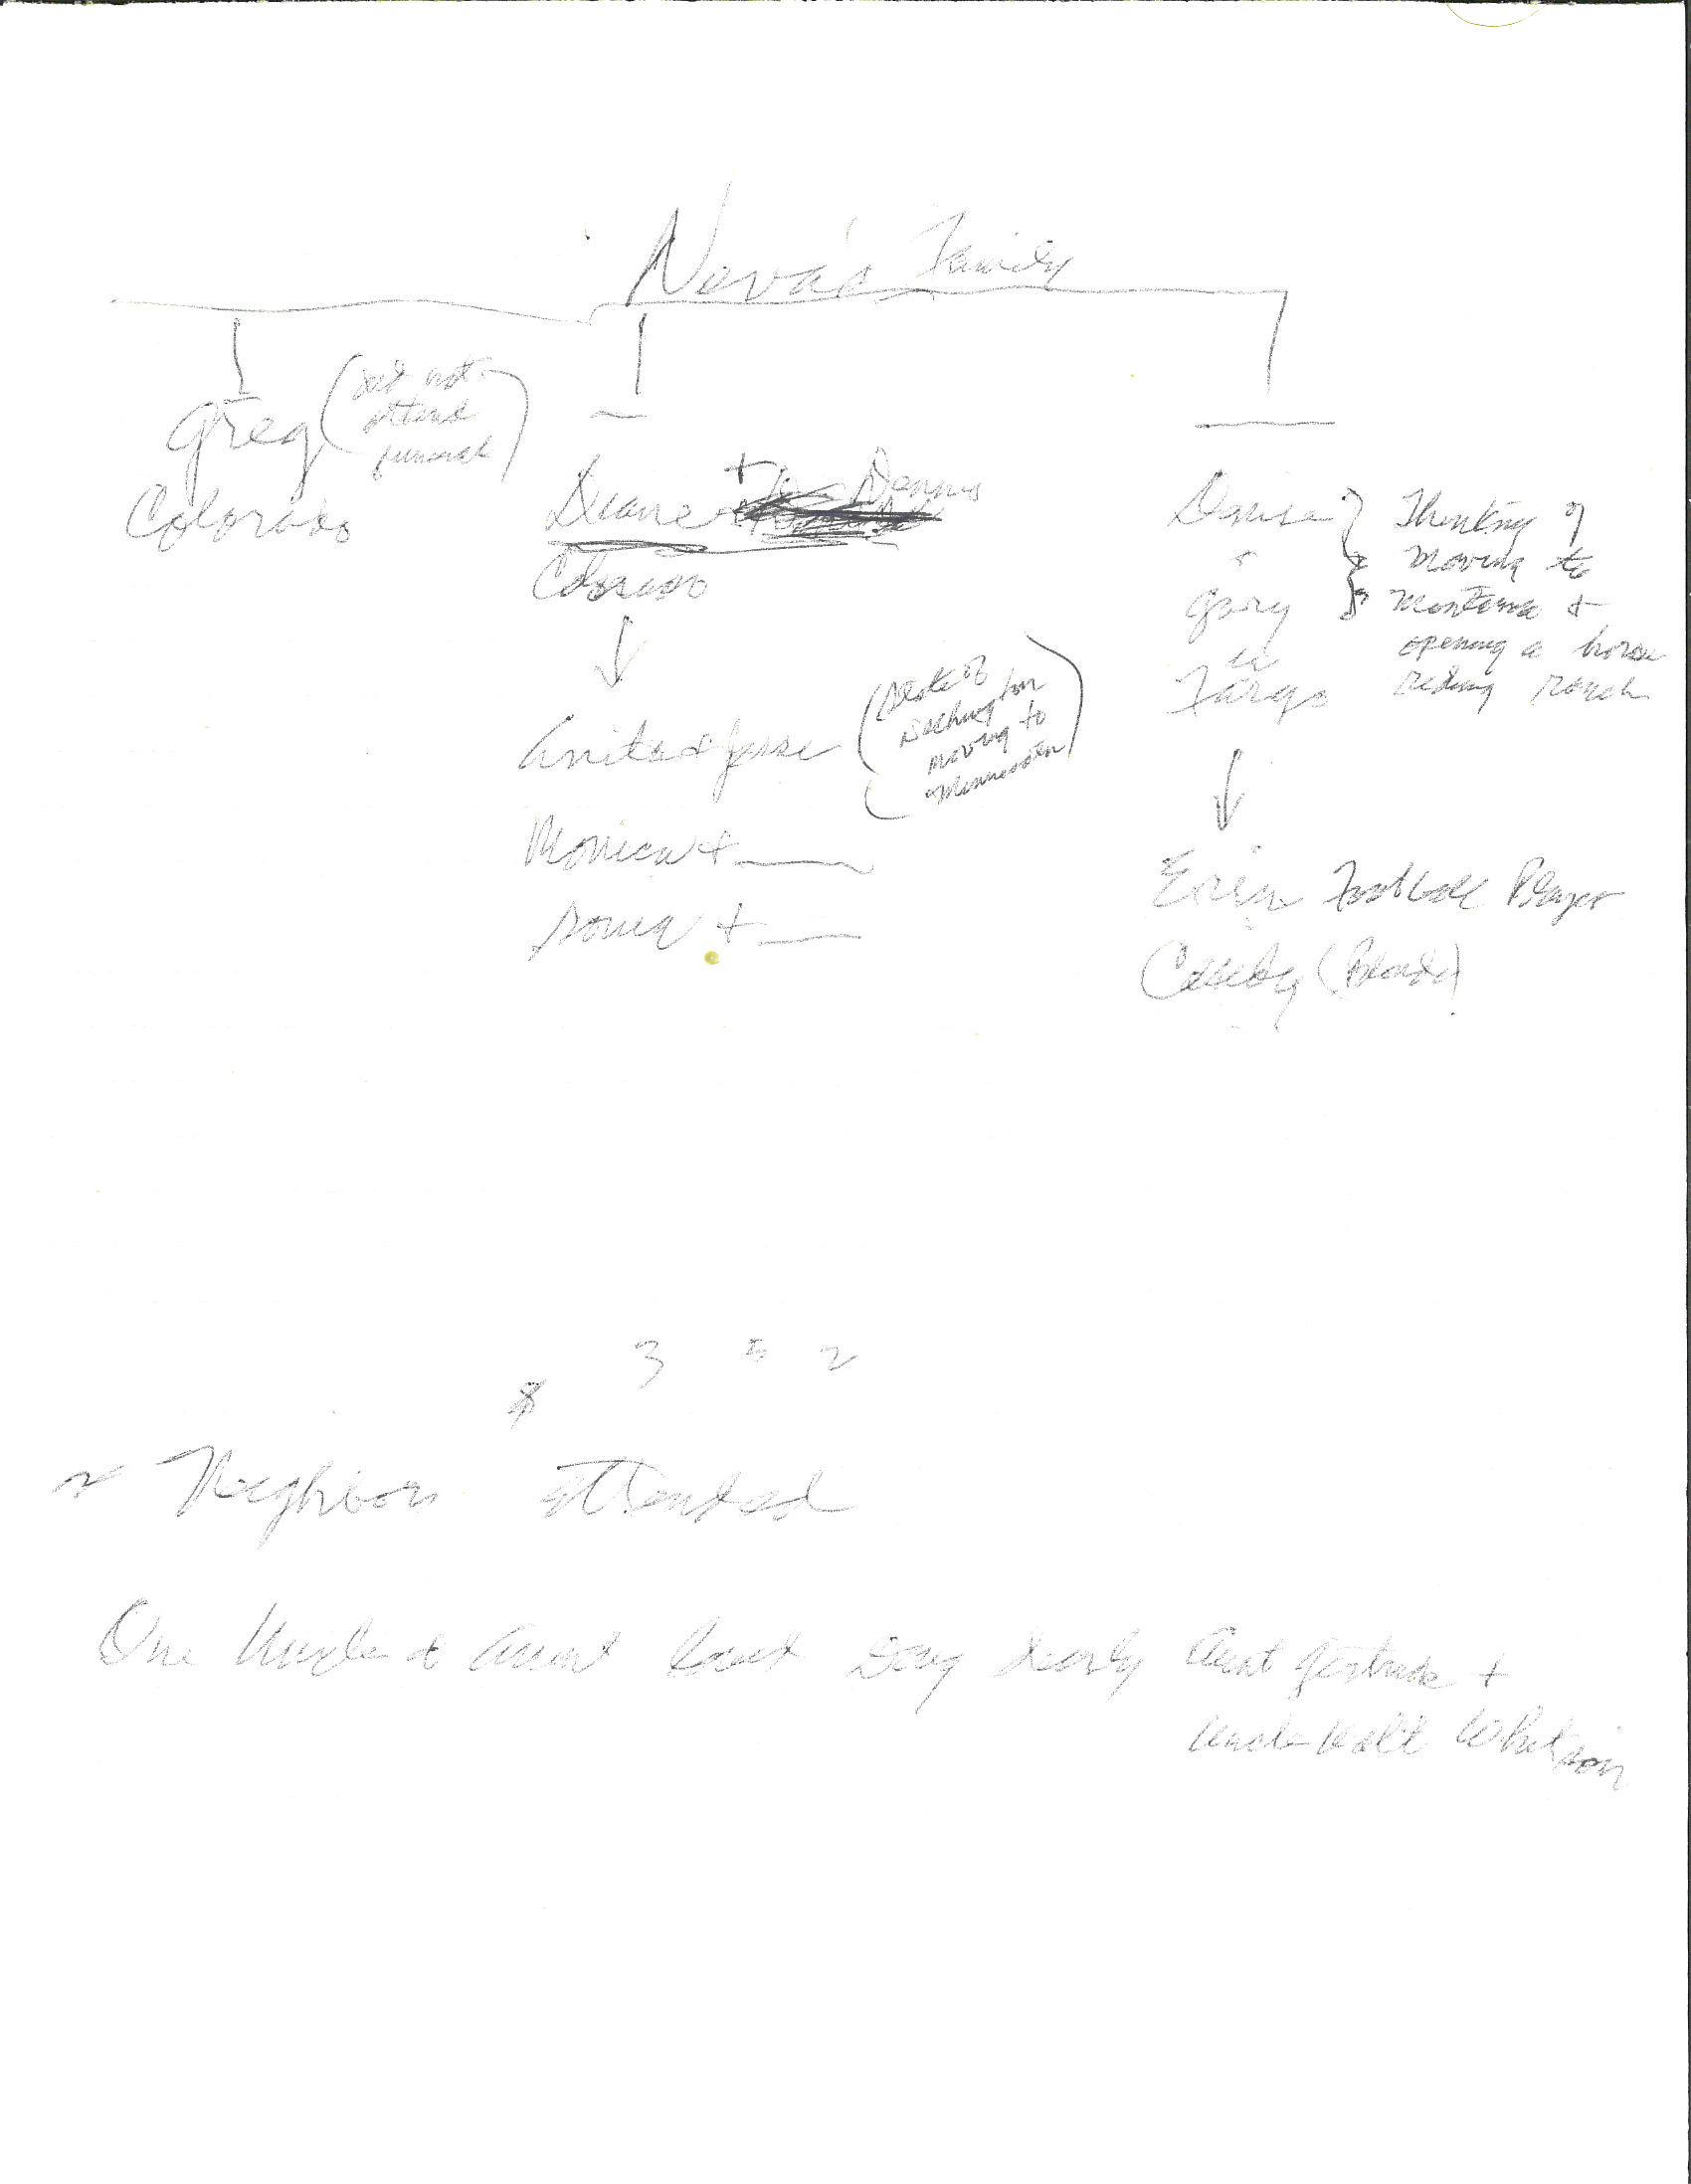 Neva's Family
Greg (did not
attend
funeral)
Colorado
Diane + Dennis
Colorado
Anita & Jesse (State of
Washington
moving to
Minnesota)
Monica + ___
Sonia + ___
Denise
+
Gary
in
Fargo
Thinking of
moving to
Montana +
opening a horse
riding ranch
Erin Football Player
(Blonde)
3 5 2
Neighbors attended
One Uncle & Aunt loved Doug dearly Aunt Gertrude +
Uncle Walt